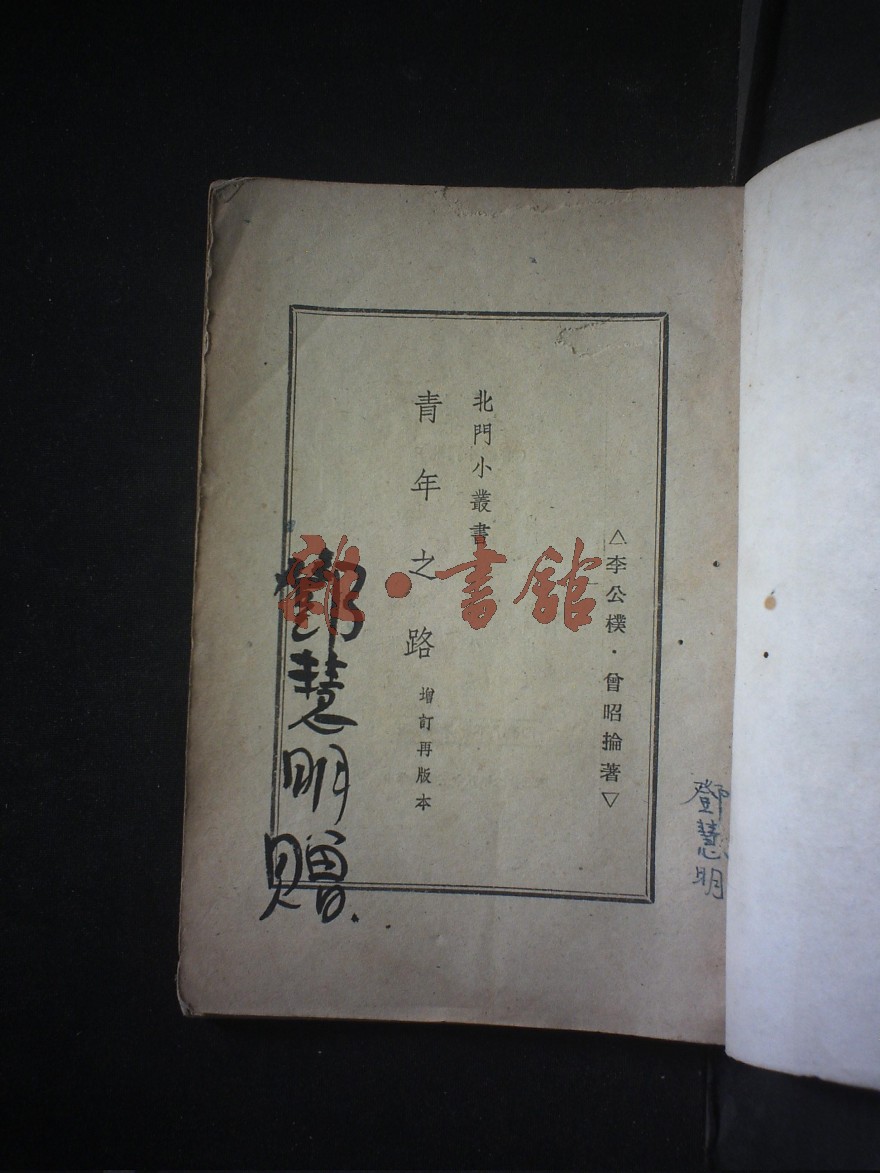 △李公樸·曾昭掄著▽
北門小叢書
青年之路 增訂再版本
鄧慧明贈.
鄧慧明
雜·書館